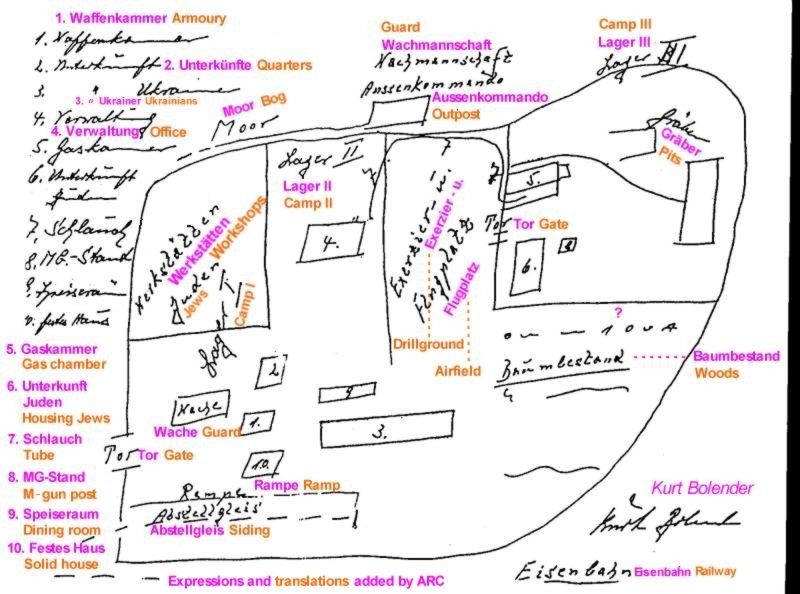 1. Waffenkammer Armoury
1. Waffenkammer
2. Unterkünft 2. Unterkünfte Quarters
3. " Ukrainer
3. " Ukrainer Ukrainians
4. Verwaltung
4. Verwaltung Office
5. Gaskammer
6. Unterkünft
Juden
7. Schlauch
8. MG.-Stand
9. Speiseraum
10. festes Haus
5. Gaskammer
Gas chamber
6. Unterkunft
Juden
Housing Jews
7. Schlauch
Tube
8. MG-Stand
M-gun post
9. Speiseraum
Dining room
10. Festes Haus
Solid house
Moor Bog
Moor
Guard
Wachmannschaft
Wachmannschaft
Aussenkommando
Aussenkommando
Outpost
Camp III
Lager III
Lager III
Gräber
Gräber
Pits
Lager II
Lager II
Camp II
4.
Werkstätten
Werkstätten Workshops
Juden
Jews
Lager I
Camp I
7
Exerzier- u.
Flugplatz
Exerzier- u.
Flugplatz
Drillground
Airfield
7
5.
Tor
Tor Gate
6.
8.
?
Baumbestand
Baumbestand
Woods
2.
Wache
Wache Guard
1.
9
3.
10.
Tor
Tor Gate
Rampe
Rampe Ramp
Abstellgleis
Abstellgleis Siding
Kurt Bolender
Kurt Bolender
Eisenbahn
Eisenbahn Railway
Expressions and translations added by ARC